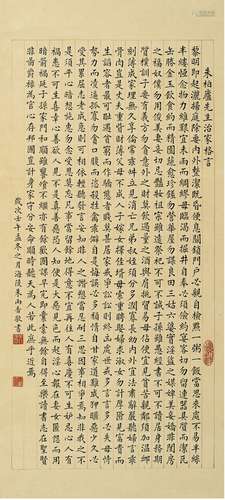 朱柏廬先生治家格言
黎明即起灑掃庭除要內外整潔既昏便息關鎖門戶必親自檢點一粥一飯當思來處不易半絲
半縷恒念物力維艱宜未雨而綢繆毋臨渴而掘井自奉必須儉約宴客切勿留連器具質而潔瓦
缶勝金玉飲食約而精園蔬愈珍饈勿營華屋勿謀良田三姑六婆實淫盜之媒婢美妾嬌非閨房
之福奴僕勿用俊美妻妾切忌艷粧祖宗雖遠祭祀不可不誠子孫雖愚經書不可不讀居身務期
質樸訓子要有義方勿貪意外之財莫飲過量之酒與肩挑貿易毋佔便宜見貧苦親鄰須加溫卹
刻薄成家理無久享倫常乖舛立見消亡兄弟叔姪須分多潤寡長幼內外宜法肅辭嚴聽婦言乖
骨肉豈是丈夫重貲財薄父母不成人子嫁女擇佳壻毋索重聘娶媳求淑女勿計厚奩見富貴而
生諂容者最可恥遇貧窮而作驕態者賤莫甚居家戒爭訟訟則終凶處世戒多言言多必失毋恃
勢力而凌逼孤寡勿貪口腹而恣殺牲禽乖僻自是悔誤必多頹惰自甘家道難成狎暱惡少久必
受其累屈志老成急則可相依輕聽發言安知非人之譖愬當忍耐三思因事相爭焉知非我之不
是須平心暗想施惠勿念受恩莫忘凡事當留餘地得意不宜再往人有喜慶不可生妒忌心人有
禍患不可生喜幸心善欲人見不是真善惡恐人知便是大惡見色而起淫心報在妻女匿怨而用
暗箭禍延子孫家門和順雖饔飧不繼亦有餘歡國課早完即囊橐無餘自得至樂讀書志在聖賢
為官心存國豈計身家守分安命順時聽天為人若此庶乎近焉
歲次壬午孟冬之月海陵朱山敬書